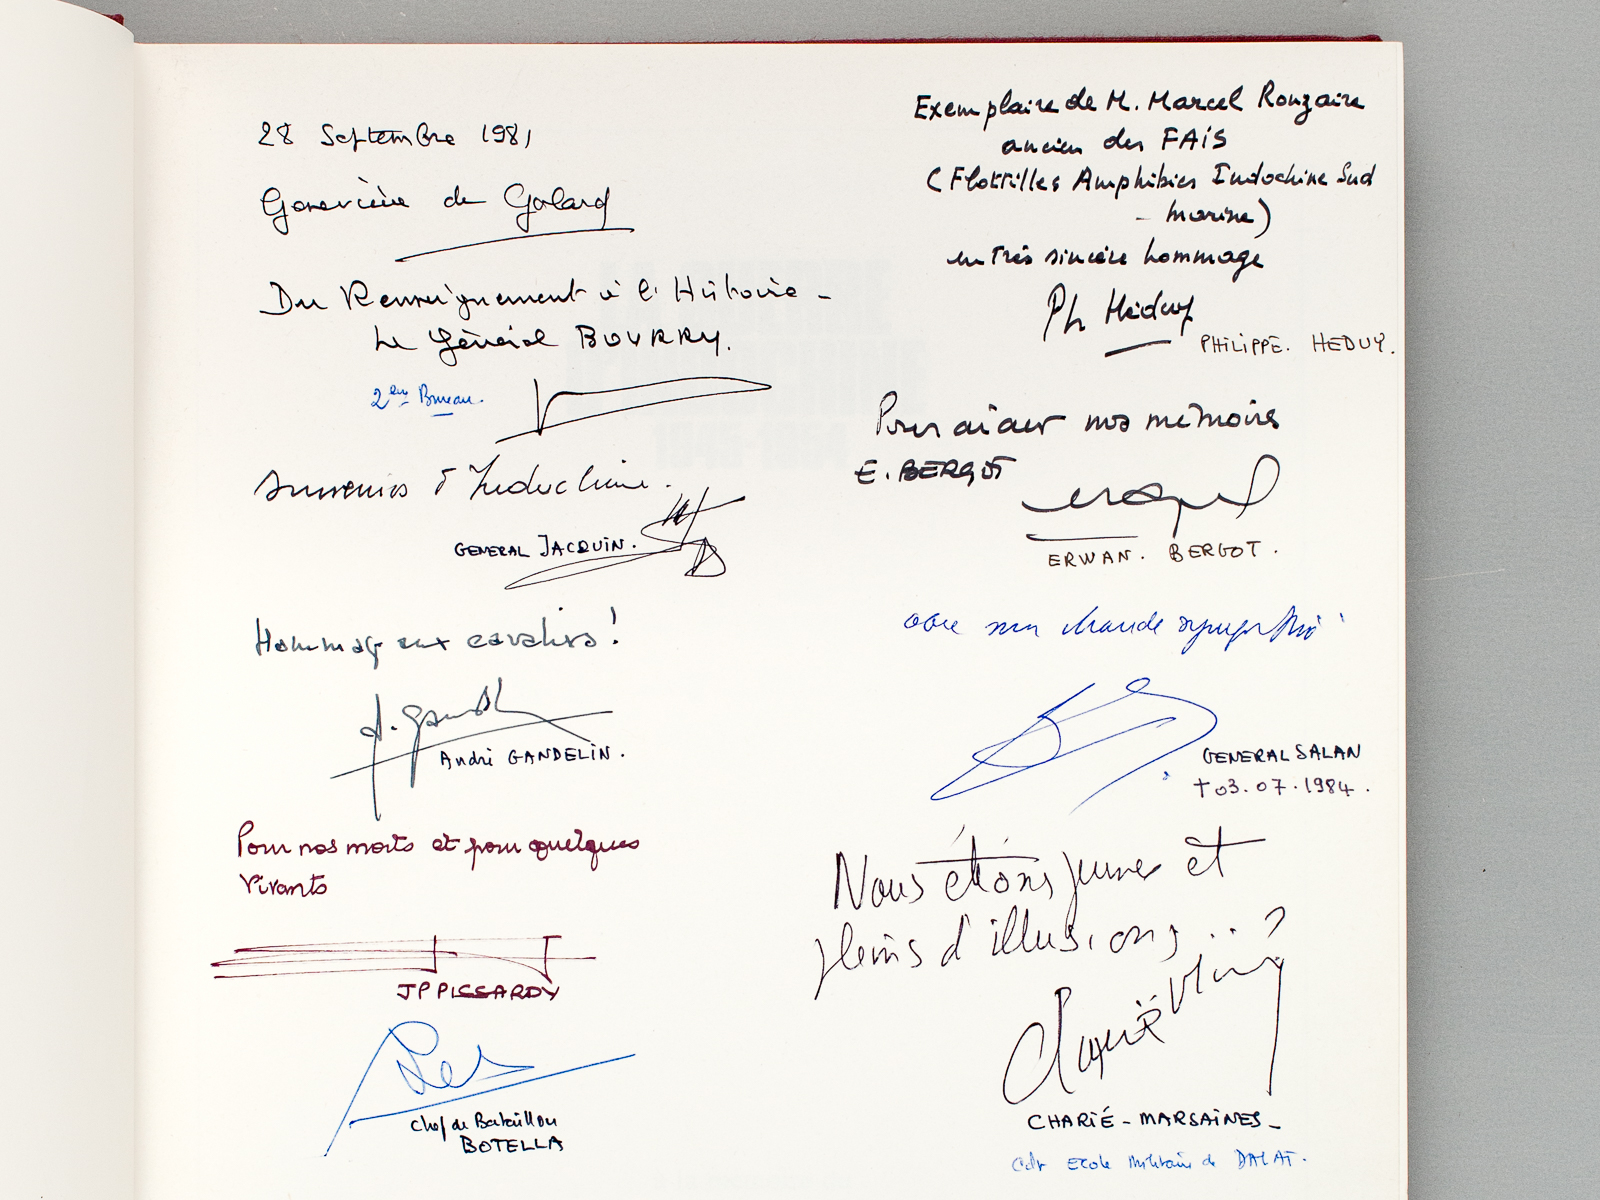 28 Septembre 1981
Geneviève de Galard
Du Renseignement à l'Histoire -
Le Général BOURRY.
2em Bureau.
Souvenirs d'Indochine.
GENERAL JACQUIN.
Hommage aux cavaliers!
A. Gandelin
André GANDELIN.
Pour nos morts et pour quelques
vivants
JP PISSARDY
Chef de Bataillon
BOTELLA
Exemplaire de M. Marcel Rouzaire
ancien des FAIS
(Flottilles Amphibies Indochine Sud
- marine)
en très sincère hommage
Ph Héduy
PHILIPPE. HEDUY.
Pour aider nos mémoires
E. BERGOT
ERWAN. BERGOT.
avec ma chaude sympathie
GENERAL SALAN
† 03.07.1984.
Nous étions jeunes et
pleins d'illusions...?
CHARIÉ - MARSAINES -
Cdt Ecole Militaire de DALAT.